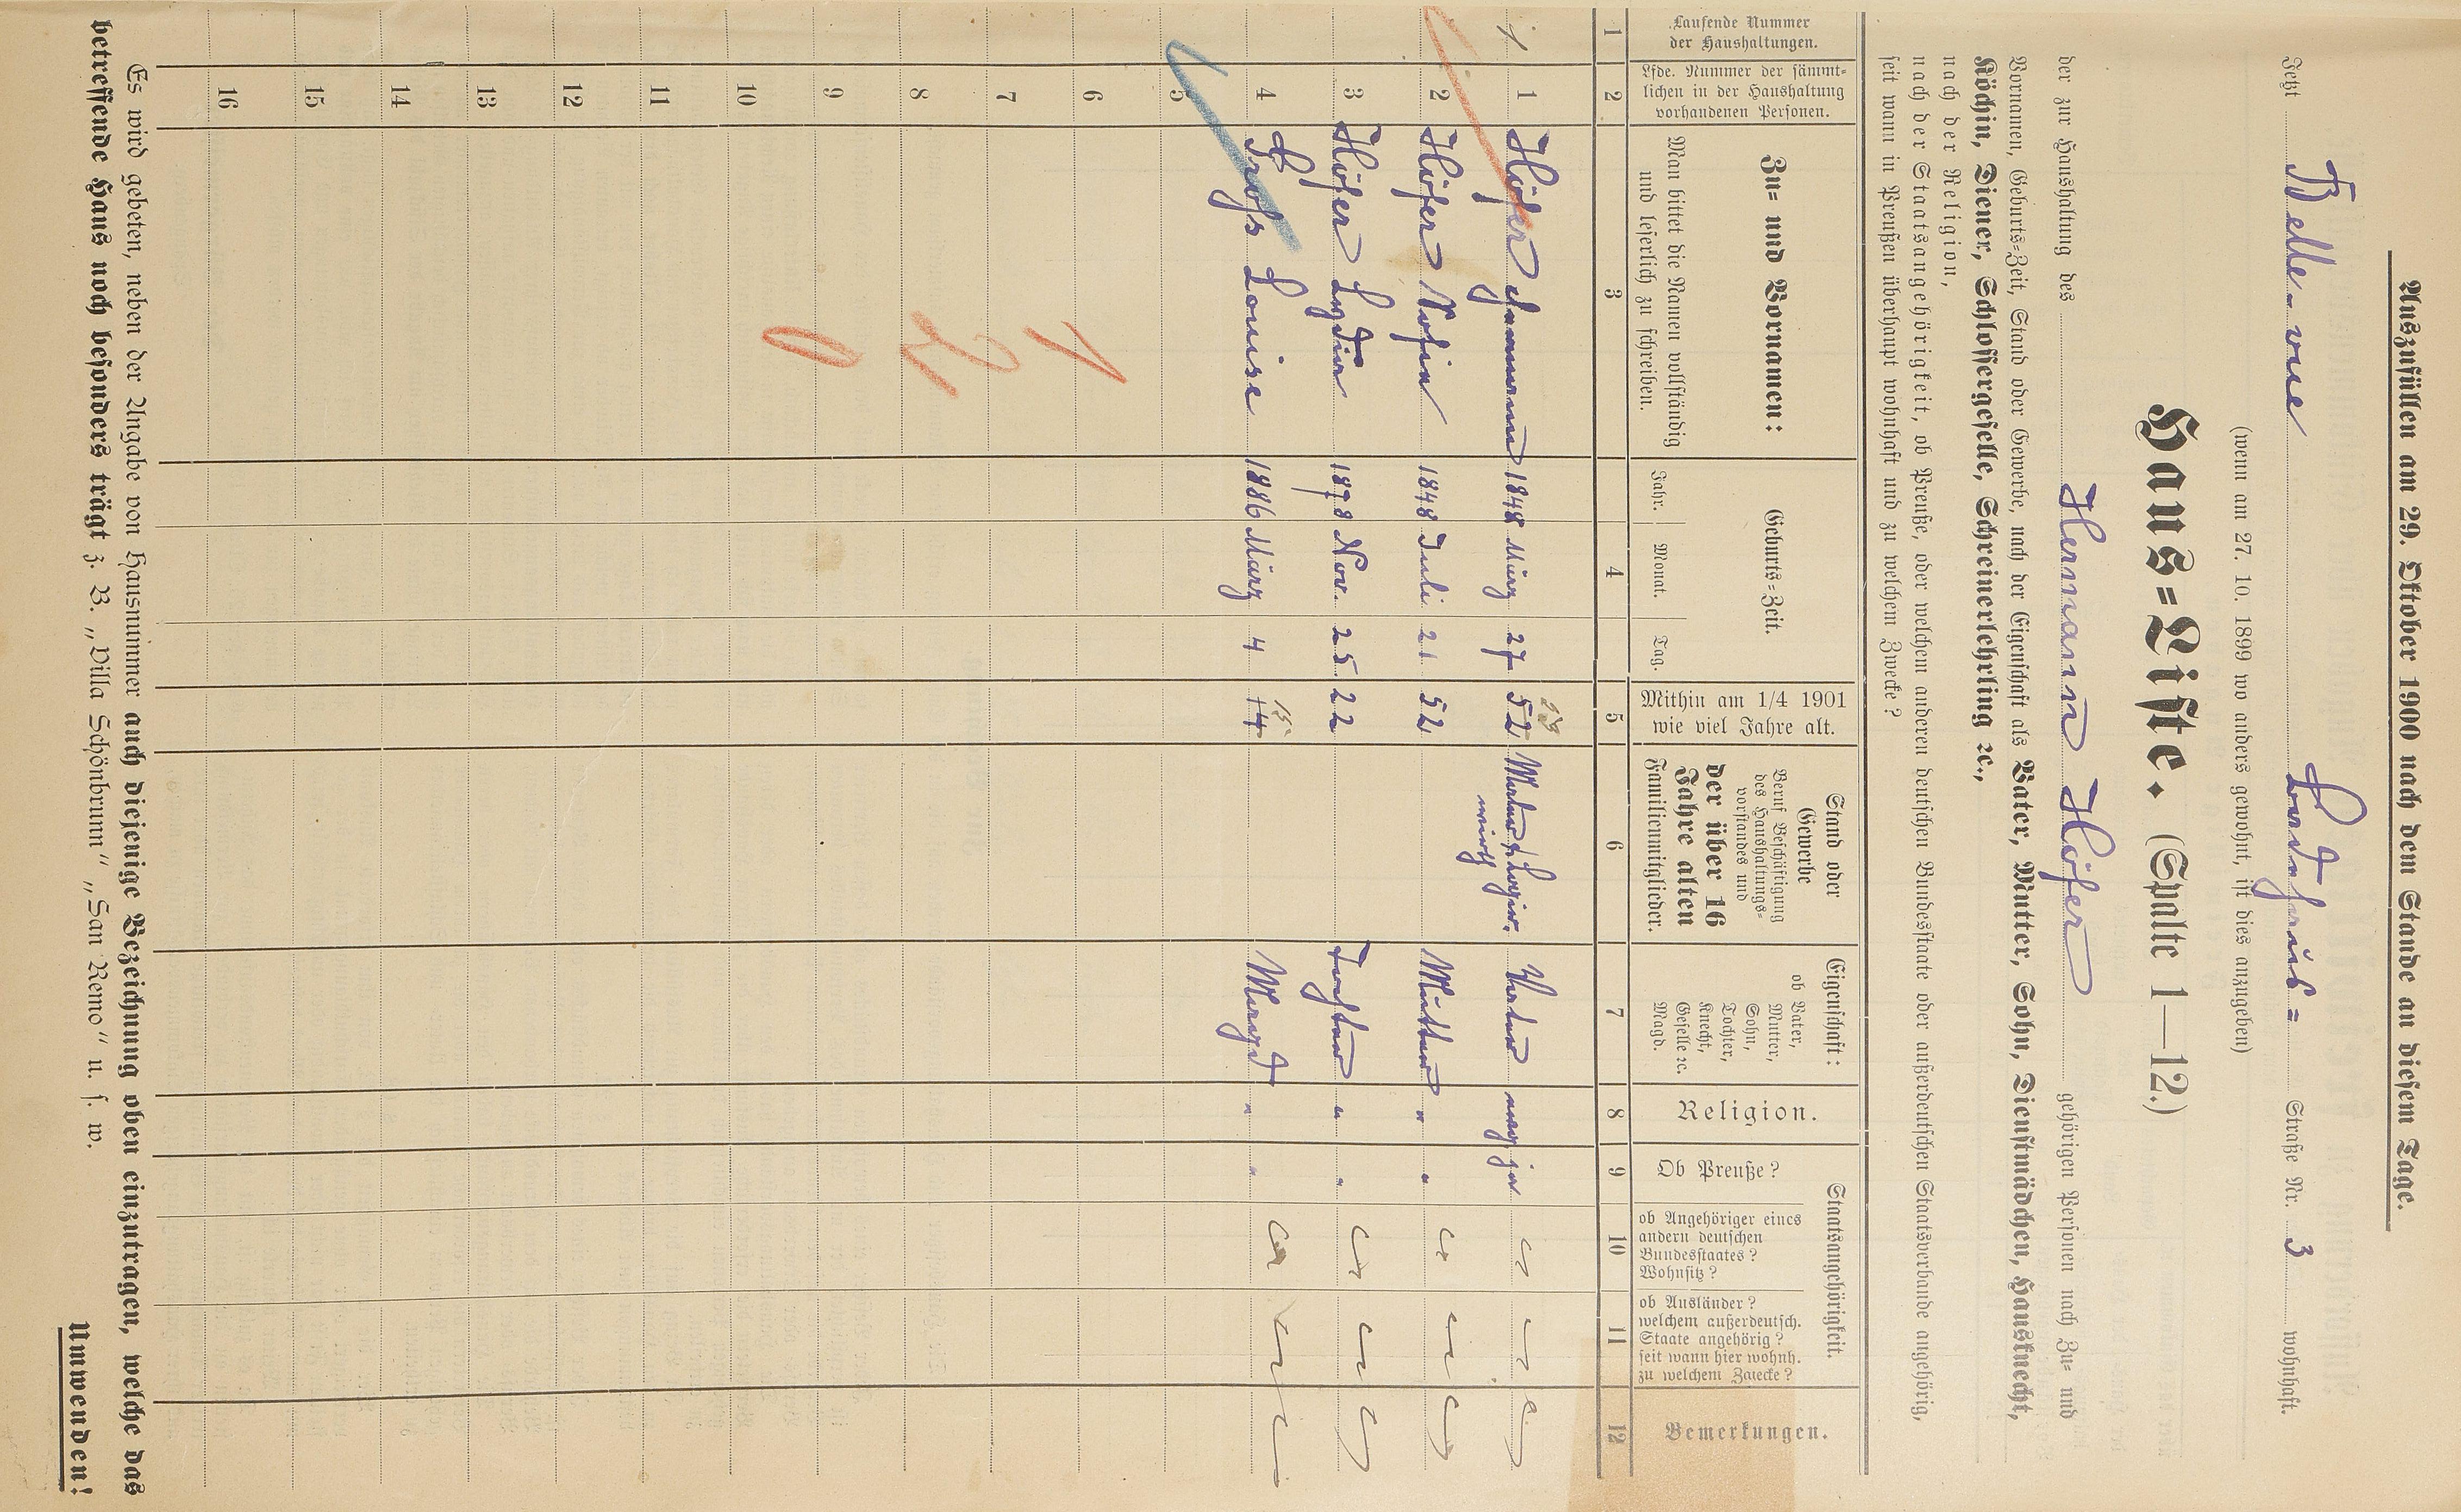 Auszufüllen am 29. Oktober 1900 nach dem Stande an diesem Tage.
Jetzt Belle-vue Landgraf= Straße Nr. 3 wohnhaft.
(wenn am 27. 10. 1899 wo anders gewohnt, ist dies anzugeben)
Haus=Liste. (Spalte 1—12.)
der zur Haushaltung des Hermann Höfer gehörigen Personen nach Zu= und
Vornamen, Geburts=Zeit, Stand oder Gewerbe, nach der Eigenschaft als Vater, Mutter, Sohn, Dienstmädchen, Hausknecht,
Köchin, Diener, Schlossergeselle, Schreinerlehrling ꝛc.,
nach der Religion,
nach der Staatsangehörigkeit, ob Preuße, oder welchem anderen deutschen Bundesstaate oder außerdeutschen Staatsverbande angehörig,
seit wann in Preußen überhaupt wohnhaft und zu welchem Zwecke?
Laufende Nummer
der Haushaltungen.
Lfde. Nummer der sämmt=
lichen in der Haushaltung
vorhandenen Personen.
Zu= und Vornamen:
Man bittet die Namen vollständig
und leserlich zu schreiben.
Geburts=Zeit.
Jahr. Monat. Tag.
Mithin am 1/4 1901
wie viel Jahre alt.
Stand oder
Gewerbe
Beruf Beschäftigung
des Haushaltungs=
vorstandes und
der über 16
Jahre alten
Familienmitglieder.
Eigenschaft:
ob Vater,
Mutter,
Sohn,
Tochter,
Knecht,
Geselle ꝛc.
Magd.
Religion.
Staatsangehörigkeit.
Ob Preuße?
ob Angehöriger eines
andern deutschen
Bundesstaates?
Wohnsitz?
ob Ausländer?
welchem außerdeutsch.
Staate angehörig?
seit wann hier wohnh.
zu welchem Zwecke?
Bemerkungen.
1 2 3 4 5 6 7 8 9 10 11 12
1 1 Höfer Hermann 1848 März 27 52 53 Logir- Vater evag ja
wirth
2 Höfer Rosin 1848 Juli 21 52 Mutter " "
3 Höfer Lydia 1878 Nov. 25 22 Tochter " "
4 Groß Louise 1886 März 4 14 15 Magd " "
5
6
7 1
8 2
9 0
10
11
12
13
14
15
16
Es wird gebeten, neben der Angabe von Hausnummer auch diejenige Bezeichnung oben einzutragen, welche das
betreffende Haus noch besonders trägt z. B. „Villa Schönbrunn" „San Remo" u. s. w.
Umwenden!